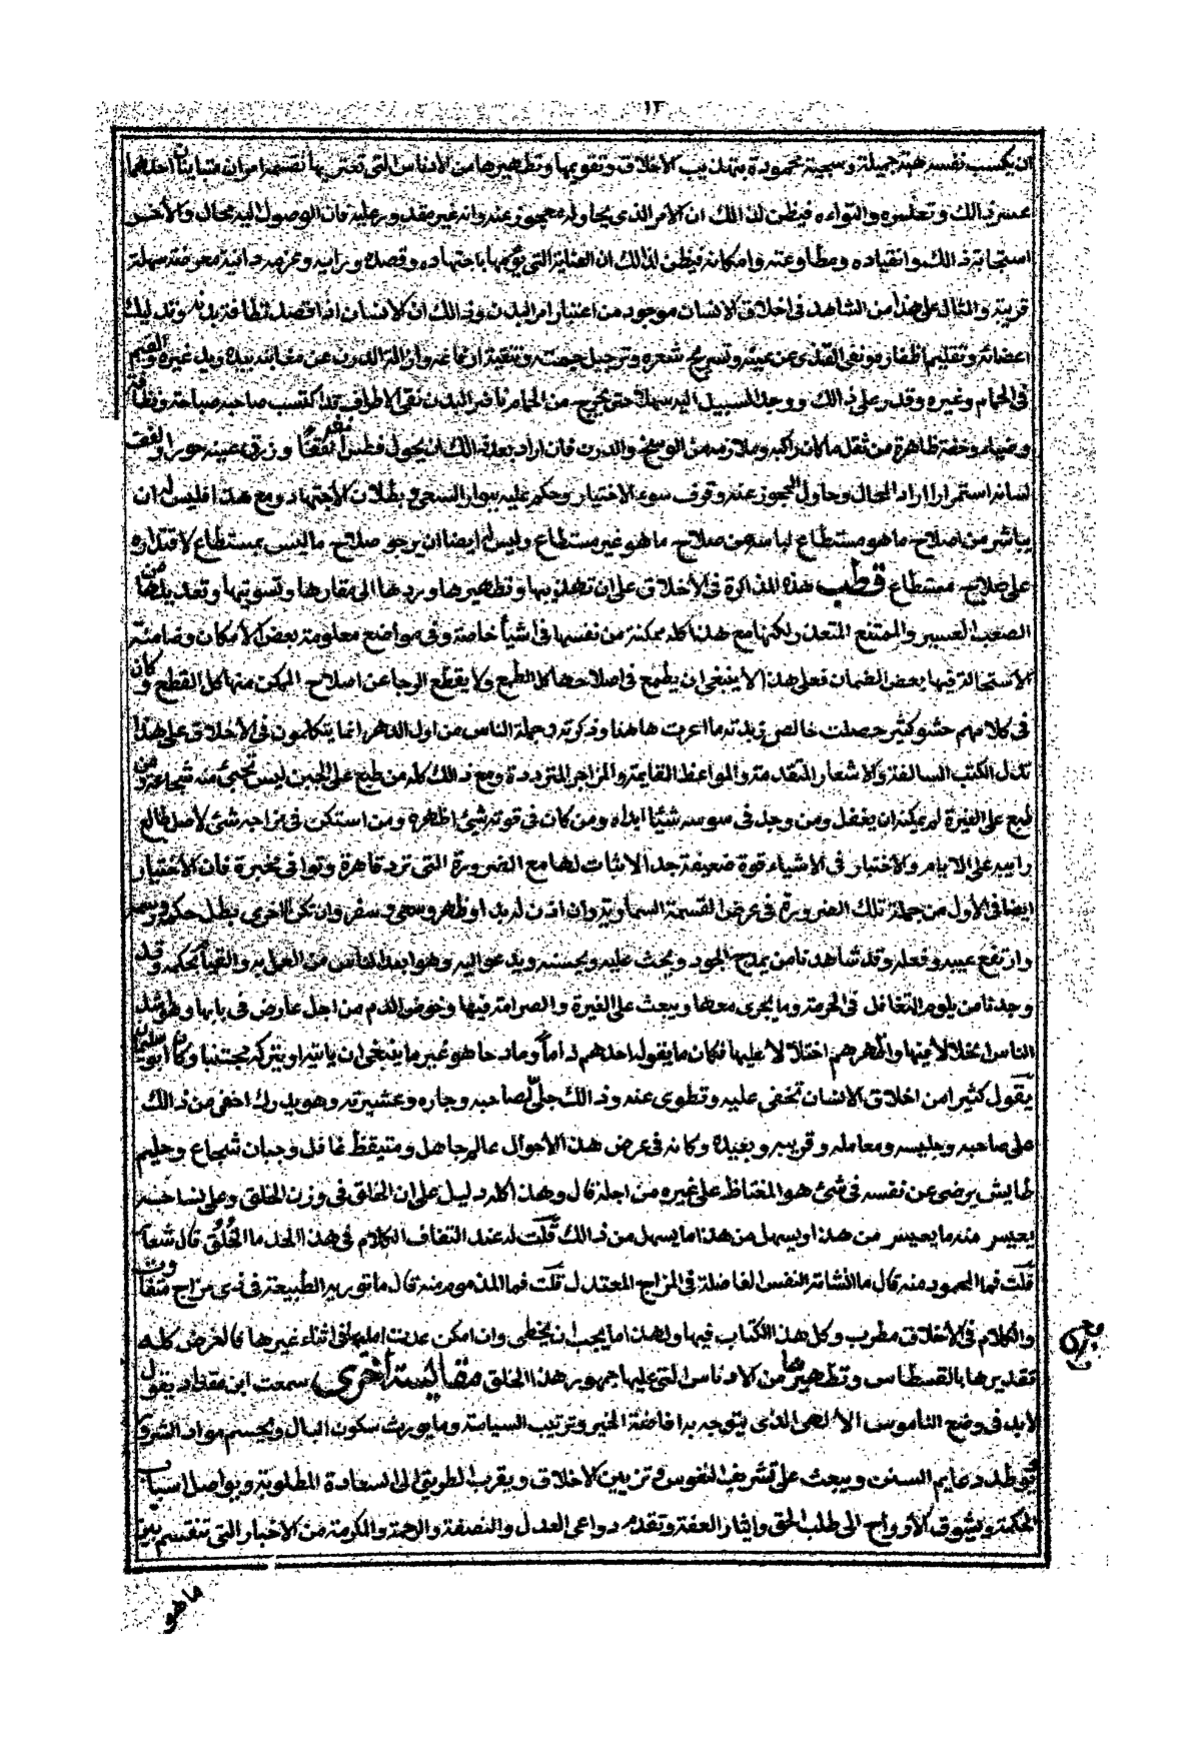 ١٢
ان يكسب نفسه هيئة جميلة وسجية محمودة بتهذيب الاخلاق وتقويمها وتطهيرها من الادناس التى تعتريها انقسم امران متباينان احدهما
عسر ذالك وتعلسره والتواءه فيظن لذالك ان الامر الذي يحاوله معجوز عنه وانه غير مقدور عليه فان الوصول اليه محال والاخر
استجابة ذالك وانقياده ومطاوعته وامكانه فيظن لذالك ان الغاية التى يؤمها باجتهاده وقصده ورايه وعزمه دانية معرضة سهلة
قريبة والمثال على هذا من الشاهد فى اخلاق الانسان موجود من اعتبار امر البدن وذالك ان الانسان اذا قصد نظافة بدنه وتدليك
اعضائه وتقليم اظفاره ونفى القذى عن عينه وتسريح شعره وترجيل جمته وتنقية ارفاغه وازالة الدرن عن مغابنه بيده ويد غيره والقيم
فى الحمام وغيره وقدر على ذالك ووجد السبيل اليه سهلا حتى يخرج من الحمام نافر البدن نقى الاطراف قد اكتسب صاحبه صباحة ونظافة
وضياء وخفة ظاهرة من ثقل ما كان راكبه وملازمه من الوسخ والدرن فان اراد بعد ذالك ان يحول فطس انفه قنا وزرق عينه حورا ولفف
لسانه استمرارا اراد المحال وحاول المعجوز عنه وقرف بسوء الاختيار وحكم عليه ببوار السعى وبطلان الاجتهاد ومع هذا فليس له ان
يباشر من اصلاح ما هو مستطاع لياسه من صلاح ما هو غير مستطاع وليس له ايضا ان يرجو صلاح ما ليس بمستطاع لاقتداره
على صلاح مستطاع قطب هذه المذاكرة فى الاخلاق على ان تهذيبها وتطهيرها وردها الى مقارها وتسويتها وتعديلها من
الصعب العسير والممتنع المتعذر ولكنها مع هذا كله ممكنة من نفسها فى اشيأ خاصة وفى مواضع معلومة بعض الامكان وضامنة
الاستحالة فيها بعض الضمان فعلى هذا لا ينبغى ان يطمع فى اصلاحها كل الطمع ولا يقطع الرجا عن اصلاح الممكن منها كل القطع وكان
فى كلامهم حشو كثير حصلت خالص زبدته ما اعرت هاهنا وذكرته وجملة الناس من اول الدهر انما يتكلمون فى الاخلاق على هذا
تدل الكتب السالفة والاشعار المتقدمة والمواعظ القايمة والمزاجر المترددة ومع ذالك كله من طبع على الجبن ليس تجئ منه شجاعة ومن
طبع على الغيرة لم يمكنه ان يغفل ومن وجد فى سوسه شيئا ابداه ومن كان فى قوته شئ اظهره ومن استكن فى مزاجه شئ لاصل طالع
رابه على الايام والاختيار فى الاشياء قوة ضعيفة جدا لاثبات لها مع الضرورة التى ترد قاهرة وتوافى مخبرة فان الاختيار
ايضا فى الاول من جملة تلك الضرورة فى عرض القسمة السماوية وان اذن له بدا وظهر وسعى وسفر وان تكن الاخرى بطل حكمه ورسمه
وارتفع عيبه وفعله وقد شاهدنا من يمدح الجود ويحث عليه ويحسنه ويدعو اليه وهو ابعد الناس من العمل به والقيأ بحكمه وقد
وجدنا من يلوم التغافل فى الحرمة وما يجرى معها ويبعث على الغيرة والصرامة فيها وخوض الدم من اجل عارض فى بابها وهو اشد
الناس انحلالا منها واظهرهم اختلالا عليها فكان ما يقول احدهم ذاماً ومادحا هو غير ما ينبغى ان ياتيه او يتركه مجتنبا وكان ابو سليمان
يقول كثير من اخلاق الانسان تخفى عليه وتطوى عنه وذالك جلىّ لصاحبه وجاره وعشيرته وهو يدرك اخفى من ذالك
على صاحبه وجليسه ومعامله وقريبه وبعيده وكانه فى عرض هذه الاحوال عالم جاهل ومتيقظ غافل وجبان شجاع وحليم
طايش يرضى عن نفسه فى شئ هو المغتاظ على غيره من اجله قال وهذا كله دليل على ان الخلق فى وزن الخلق وعلى نساجه
يعسر منه ما يعسر من هذا ويسهل من هذا ما يسهل من ذالك قلت له عند التفاف الكلام فى هذا الحد ما الخُلُق قال شعار
قلت فما المحمود منه قال ما انشاته النفس الفاضلة فى المزاج المعتدل قلت فما المذموم منه قال ما توربه الطبيعة فى ذى مزاج متفاوت
والكلام فى الاخلاق مطرب وكل هذا الكتاب فيها ولهذا ما يجب ان يخطى وان امكن عدت اليها فى اثناء غيرها فالغرض كله
تقديرها بالقسطاس وتطهيرها من الادناس التى عليها جمهور هذا الخلق مقابسة اخرى سمعت ابن مقداد يقول
لابد فى وضع الناموس الالهى الذى يتوجه به افاضة الخير وترتيب السياسة وما يورث سكون البال ويحسم مواد الشر و
يوطد دعايم السنن ويبعث على تشريف النفوس وتزيين الاخلاق ويقرب الطريق الى السعادة المطلوبة ويواصل اسباب
الحكمة ويشوق الارواح الى طلب الحق وايثار العفة وتقدم دواعى العدل والنصفة والرحمة والكرمة من الاخبار التى تنقسم بين
ما هو